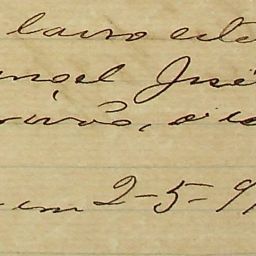 lavro este
anoel José
escrivão, o es
em 2-5-9